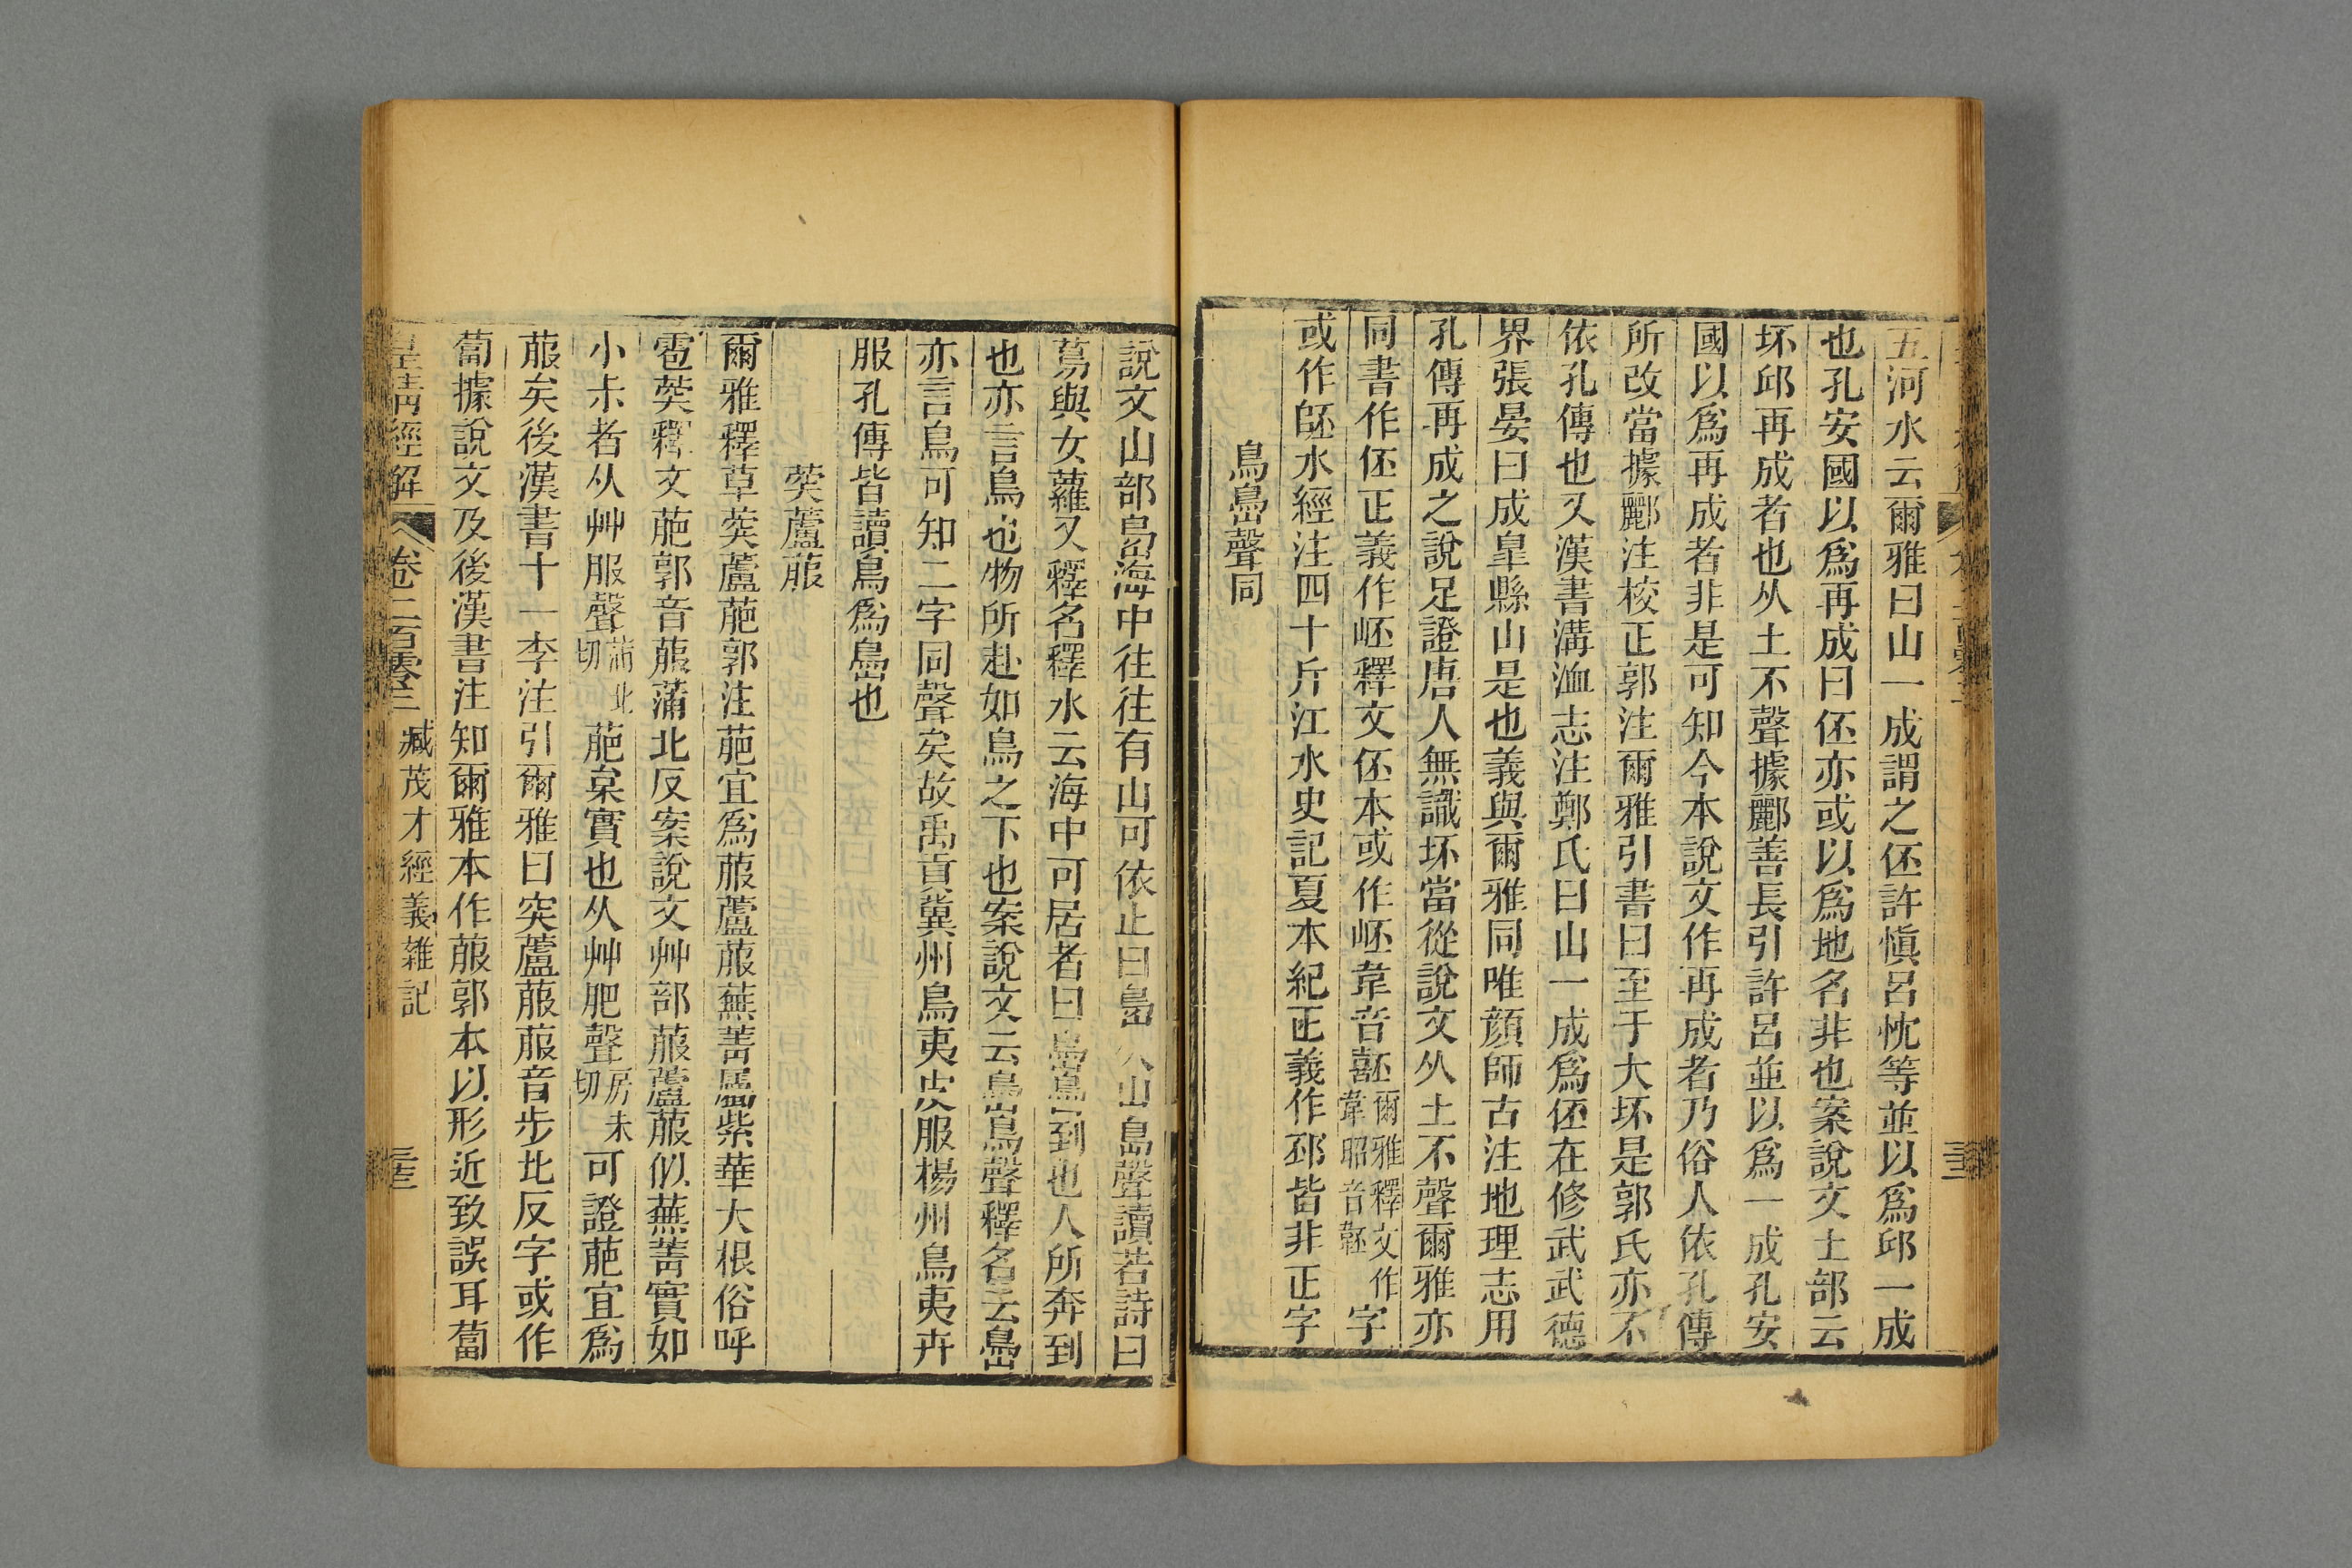 五河水云爾雅曰山一成謂之伾許愼呂忱等並以爲邱一成
也孔安國以爲再成曰伾亦或以爲地名非也案說文土部云
坏邱再成者也从土不聲據酈善長引許呂並以爲一成孔安
國以爲再成者非是可知今本說文作再成者乃俗人依孔傳
所改當據酈注校正郭注爾雅引書曰至于大坏是郭氏亦不
依孔傳也又漢書溝洫志注鄭氏曰山一成爲伾在修武武德
界張晏曰成臯縣山是也義與爾雅同唯顔師古注地理志用
孔傳再成之說足證唐人無識坏當從說文从土不聲爾雅亦
同書作伾正義作岯釋文伾本或作岯韋音嚭爾雅釋文作韋昭音嚭字
或作𨹆水經注四十斤江水史記夏本紀正義作邳皆非正字
鳥島聲同
說文山部島海中往往有山可依止曰島从山鳥聲讀若詩曰
蔦與女蘿又釋名釋水云海中可居者曰島島到也人所奔到
也亦言鳥也物所赴如鳥之下也案說文云島鳥聲釋名云島
亦言鳥可知二字同聲矣故禹貢冀州鳥夷皮服楊州鳥夷卉
服孔傳皆讀鳥爲島也
葖蘆菔
爾雅釋草葖蘆萉郭注萉宜爲菔蘆菔蕪菁屬紫華大根俗呼
雹葖釋文萉郭音菔蒲北反案說文艸部菔蘆菔似蕪菁實如
小尗者从艸服聲蒲北切萉枲實也从艸肥聲房未切可證萉宜爲
菔矣後漢書十一李注引爾雅曰突蘆菔菔音步北反字或作
蔔據說文及後漢書注知爾雅本作菔郭本以形近致誤耳蔔
皇清經解 卷二百零三 臧茂才經義雜記 三